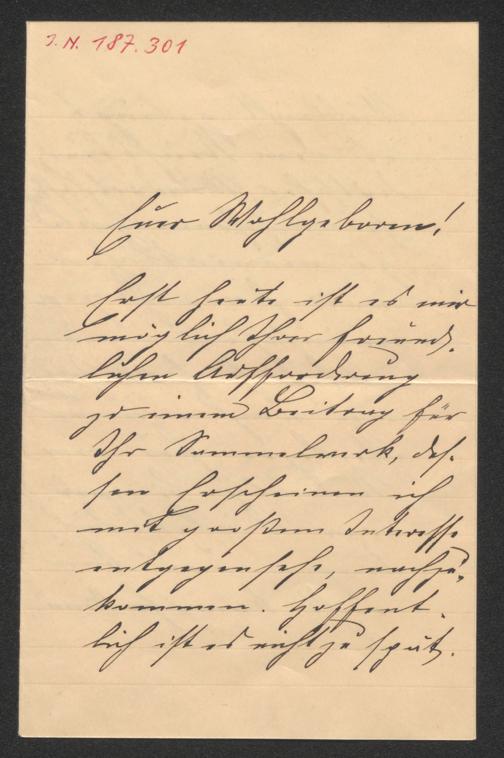 J. N. 187.301
Euer Wohlgeboren!
Erst heute ist es mir
möglich Ihrer freund-
lichen Aufforderung
zu einem Beitrag für
Ihr Sammelwerk, des-
sen Erscheinen ich
mit großem Interesse
entgegensehe, nachzu-
kommen. Hoffent-
lich ist es nicht zu spät.